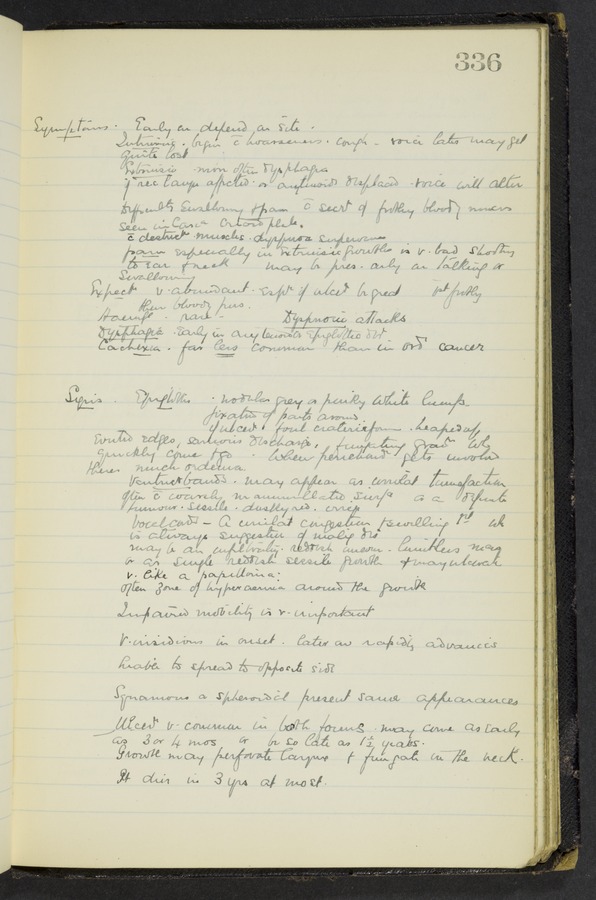 336
Symptoms. Early on depend on site.
Intrinsic. begin c̄ hoarseness. cough - voice later may get
quite lost
Extrinsic more often dysphagia
if rec laryn affected or arytenoids displaced voice will alter
Difficult Swallowing & pain c̄ secrⁿ of frothy bloody mucus
seen in Cases Cricoid plate.
c̄ destructⁿ muscles. dyspnoea supervenes
pain especially in Extrinsic growths is v. bad shooting
to ear & neck may be pres. only on Talking or
Swallowing
Expect v. abundant. Esp if ulcer be great 1st frothy
then bloody pus.
Haemge. rare - Dyspnoeic attacks
Dysphagia Early in arytenoids Epiglottic
Cachexia. far less common than in ord cancer
Signs. Epiglottis. nodular grey or pinky white lumps.
fixation of parts around.
if ulcer foul crateriform. heaped up
Everted edges, sanious discharge, fungating
quickly come & go. When perichond gets involved
theres much oedema
Ventric bands. may appear as unilat tumefaction
often c̄ coarsely mammillated surfᵉ or a definite
tumour. sessile. dusky red.
Vocal cords - A unilat congestion & swelling
is always suggestive of malig dis
may be an infiltrating reddish uneven. limitless
or as single reddish sessile growth & may ulcerate
v. like a papilloma:
often zone of hyperaemia around the growth
Impaired mobility is v. important
V. insidious in onset. later on rapidly advances
liable to spread to opposite side
Squamous & spheroidal present same appearances
Ulcer v. common in both forms. may come as early
as 3 or 4 mos or be so late as 1½ years.
Growth may perforate larynx & fungate in the neck.
Pt dies in 3 yrs at most.